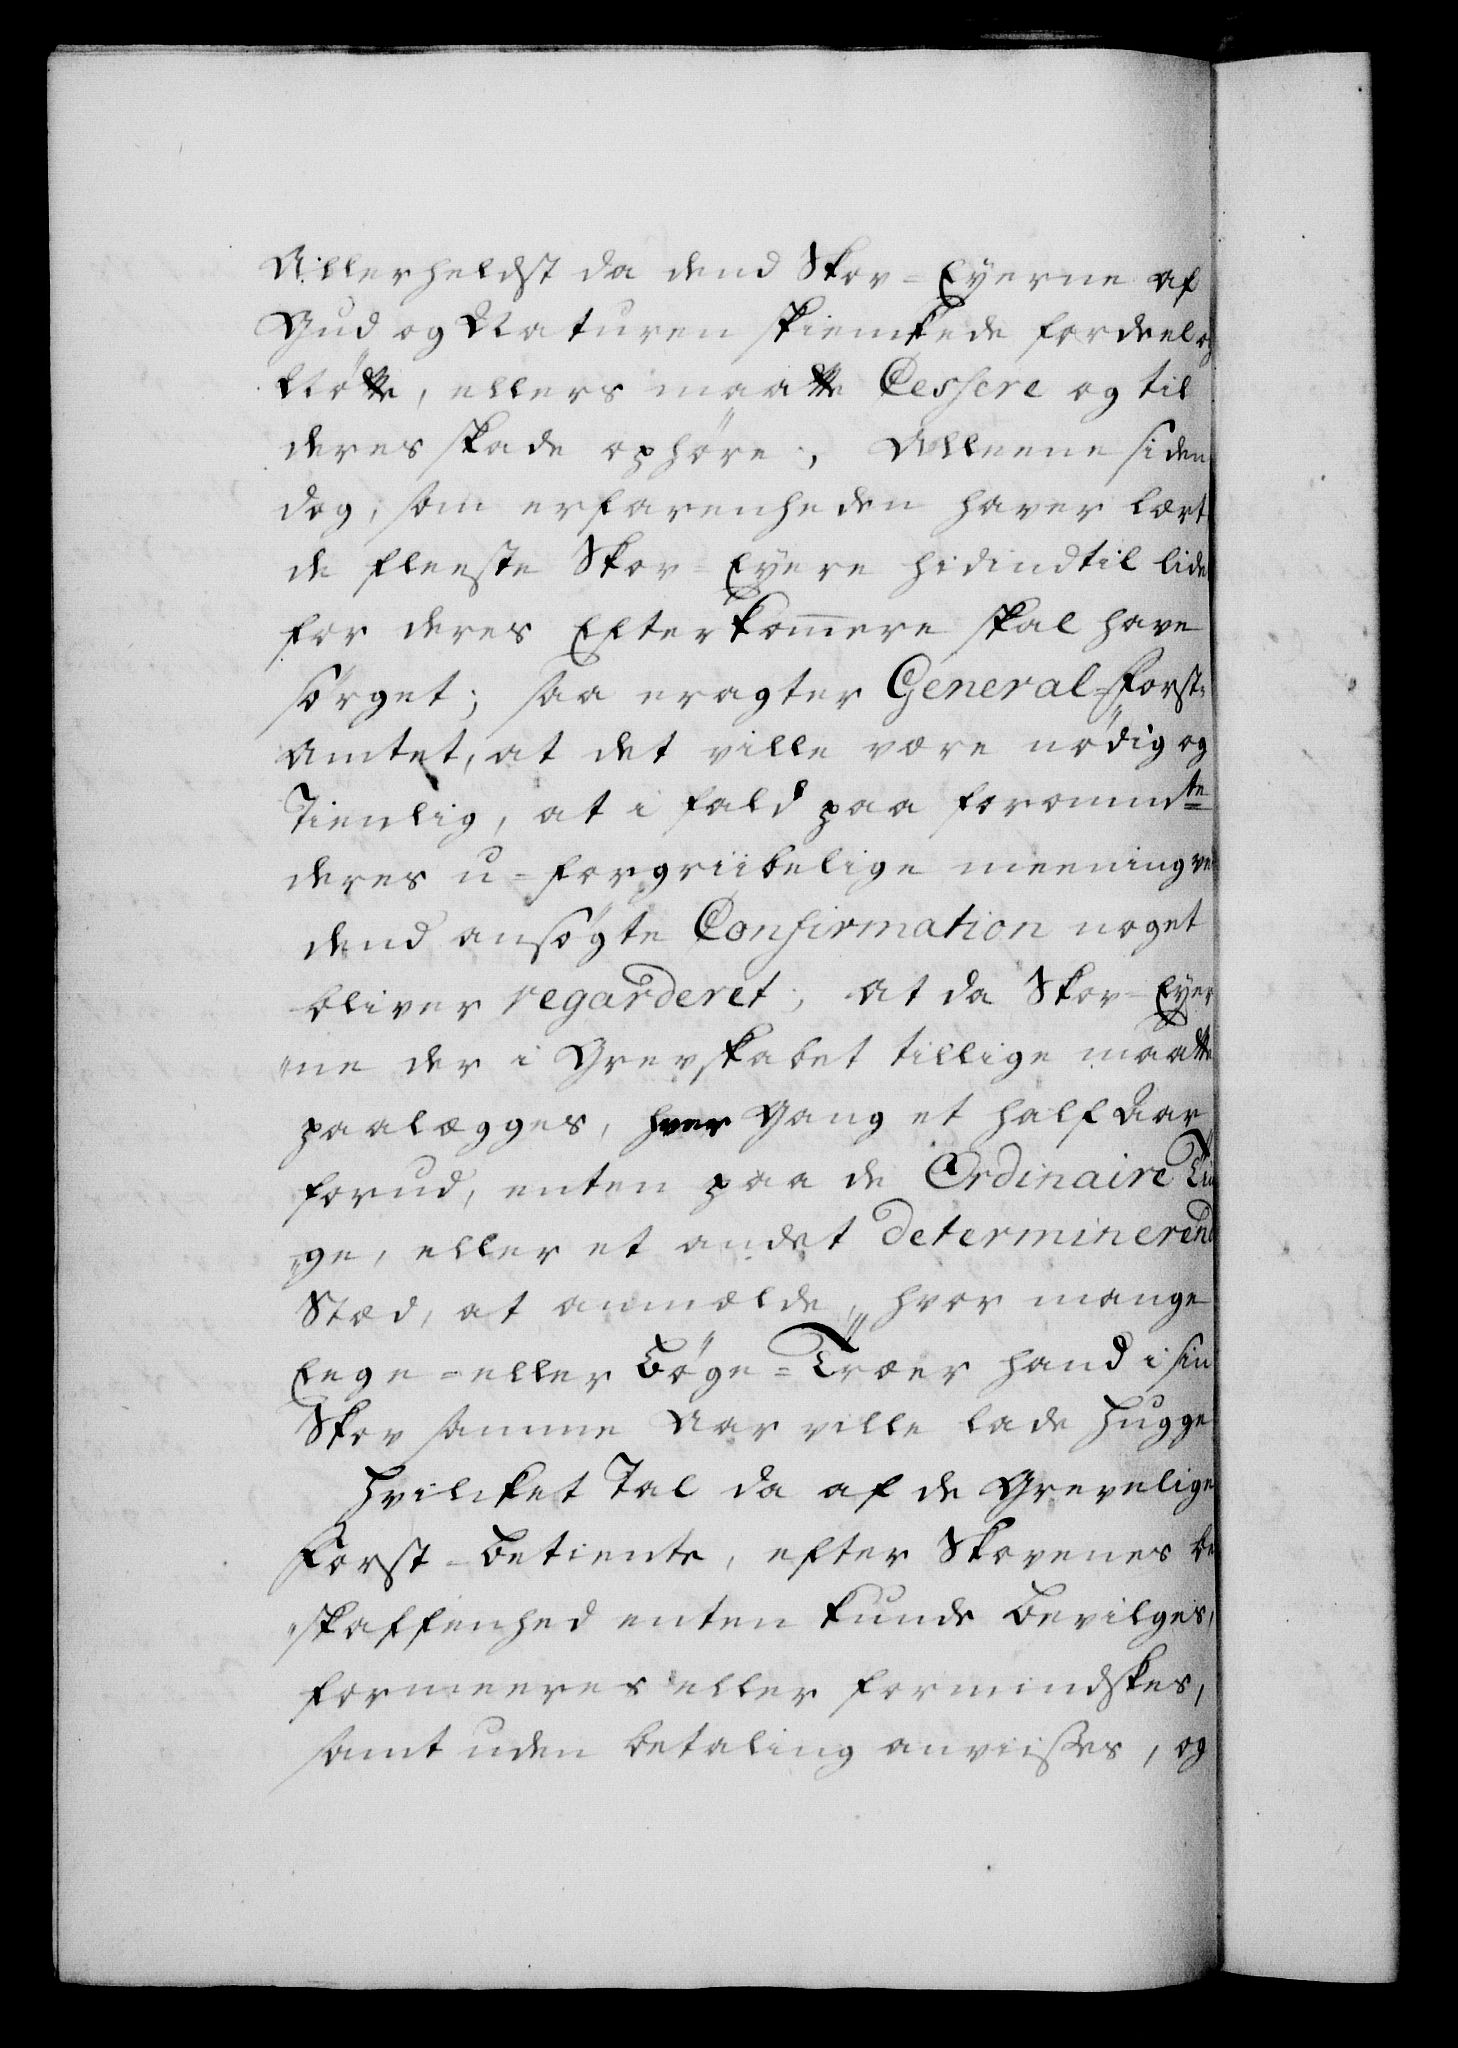 Allerheldst da dend Skov=Eyerne af
Gud og Naturen skienkede fordeel og
Nötte, ellers maatte Cessere og til
deres skade ophöre, Alleene siden
dog, som erfarenheden haver lært
de fleeste Skov=Eyere hidindtil lidet
for deres Efterkom̅ere skal have
sörget; saa eragter General=Forst=
Amtet, at det ville være nödig og
Tienlig, at i fald paa forommte
deres u=forgriibelige meening ved
dend ansögte Confirmation noget
bliver regarderet, at da Skov=Eyer
=ne der i Grevskabet tillige maatte
paalægges, hver Gang et half Aar
forud, enten paa de Ordinaire Tin
=ge, eller et andet determinerend
Stæd, at anmælde, hvor mange
Eege=eller Böge=Træer hand i sin
Skov samme Aar ville lade hugge
Hvilcket Tal da af de Grevelige
Forst=betiente, efter Skovenes be
=skaffenhed enten kunde bevilges,
formeeres eller formindskes,
samt uden betaling anviises, og